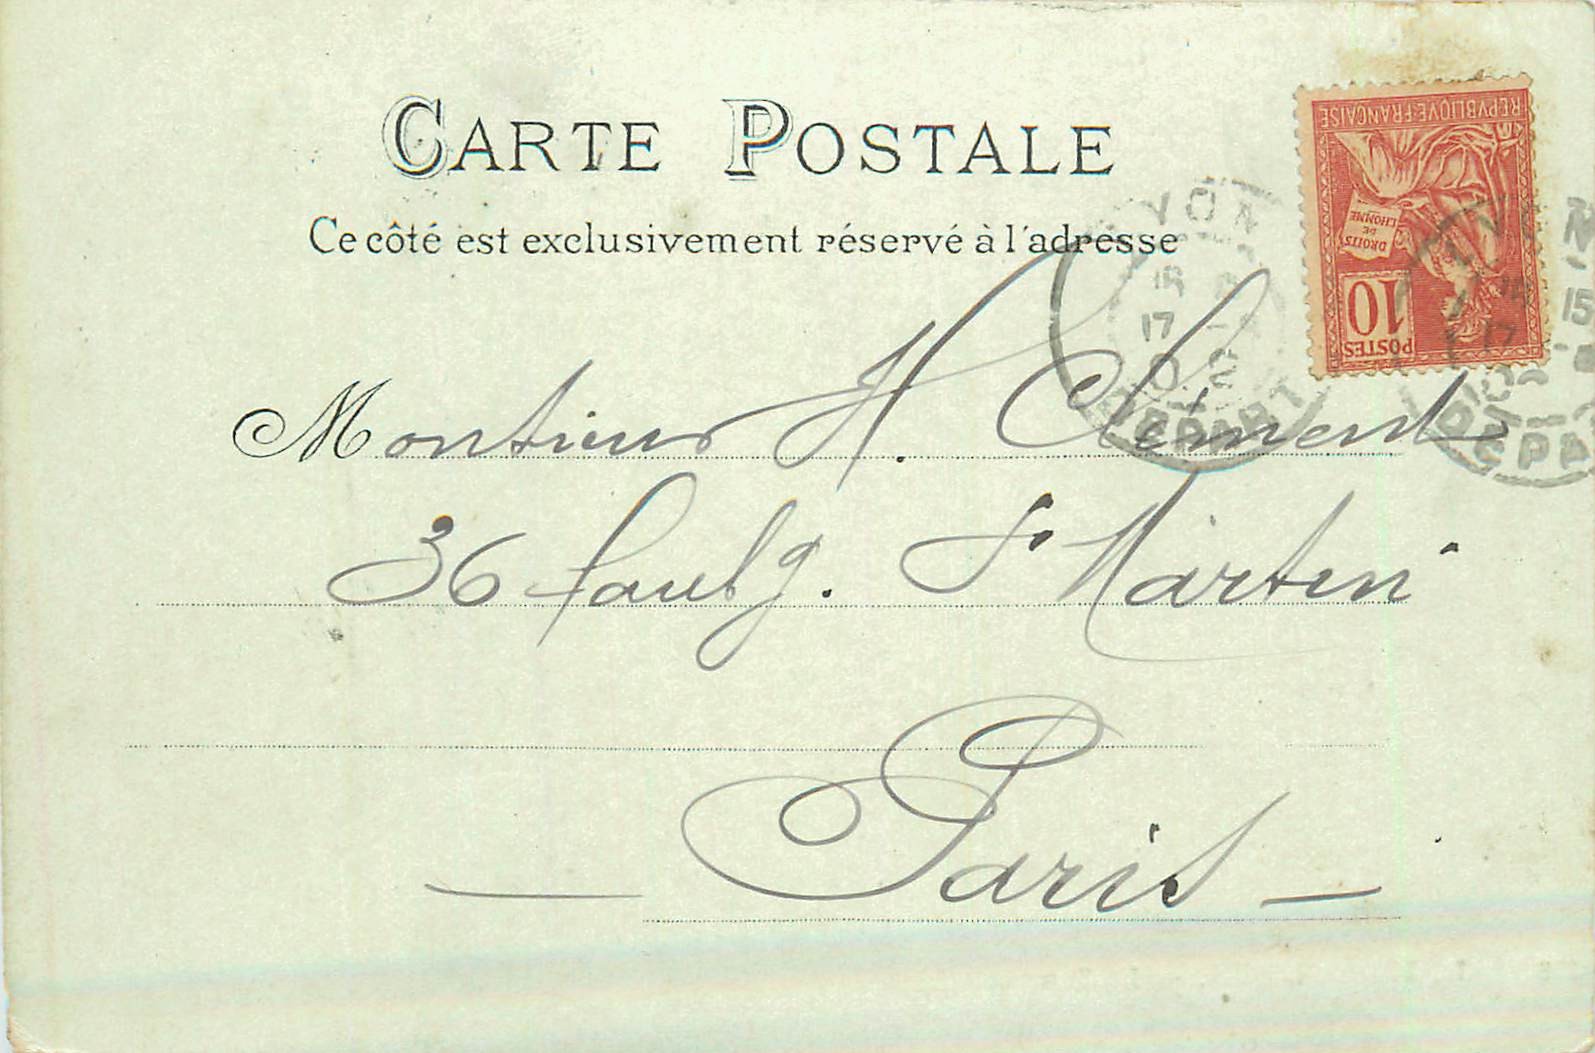 CARTE POSTALE
Ce côté est exclusivement réservé à l'adresse
REPVBLIQVE FRANÇAISE
DROITS
DE
L'HOMME
10
POSTES
17
DEPART
15
17
DEPA
Monsieur H. Clément
36 faubg. St Martin
Paris